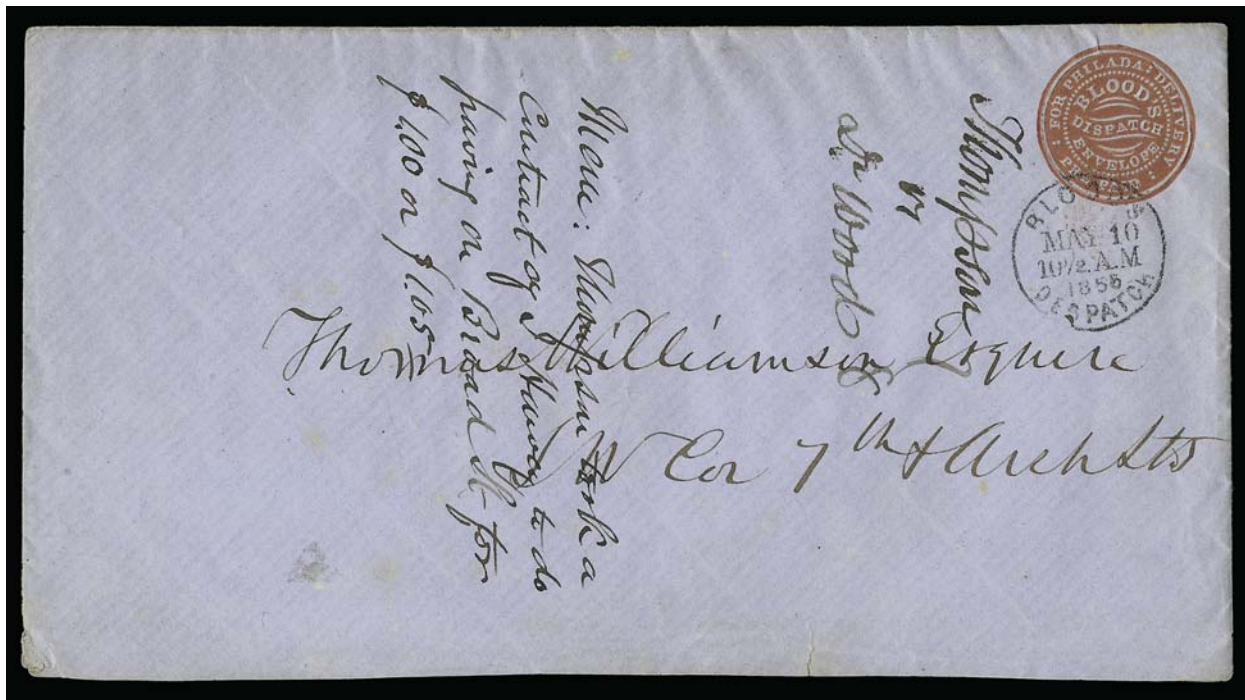 FOR PHILADA: DELIVERY
BLOOD'S
DISPATCH
ENVELOPE
PREPAID
BLOOD'S
MAY 10
10½ A.M
1855
DESPATCH
Thompson
Wood
Thompson took a
Contract of to do
paving on Broad St for
$1.00 or $1.05
Thomas Williamson Esquire
Cor 7th & Arch Sts